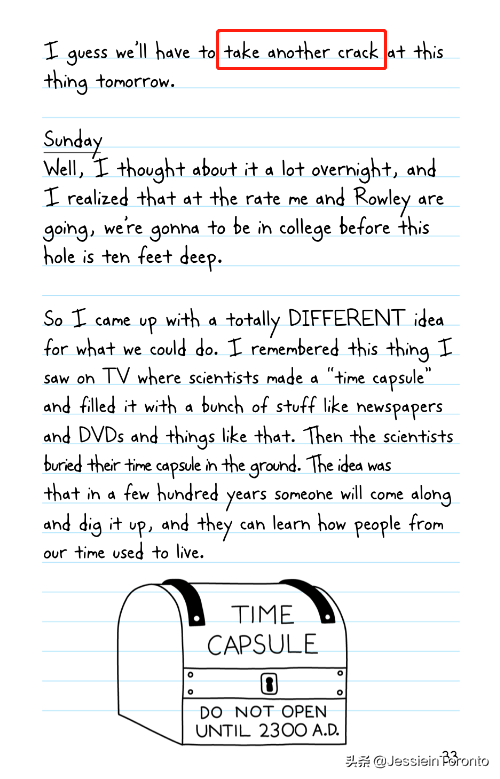 I guess we'll have to take another crack at this
thing tomorrow.
Sunday
Well, I thought about it a lot overnight, and
I realized that at the rate me and Rowley are
going, we're gonna to be in college before this
hole is ten feet deep.
So I came up with a totally DIFFERENT idea
for what we could do. I remembered this thing I
saw on TV where scientists made a "time capsule"
and filled it with a bunch of stuff like newspapers
and DVDs and things like that. Then the scientists
buried their time capsule in the ground. The idea was
that in a few hundred years someone will come along
and dig it up, and they can learn how people from
our time used to live.
TIME
CAPSULE
DO NOT OPEN
UNTIL 2300 A.D.
头条 @JessieinToronto